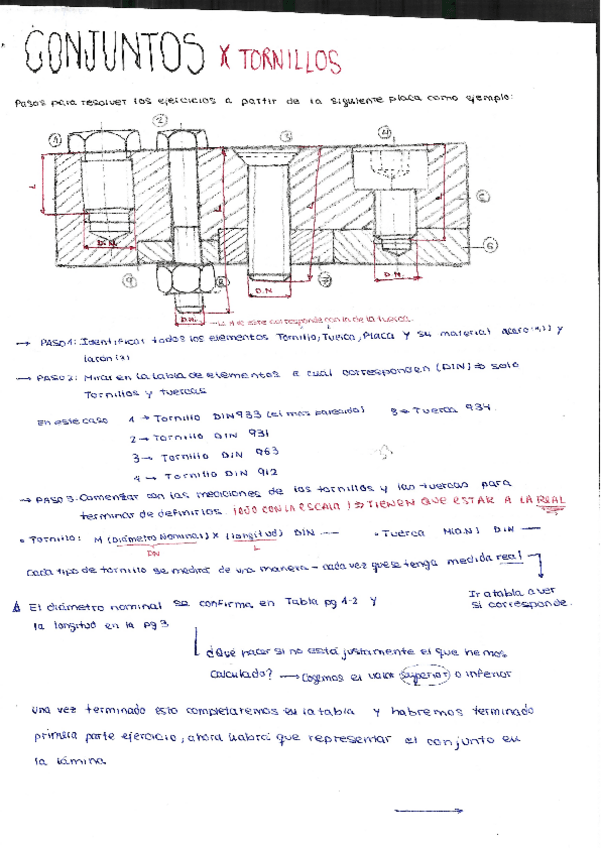 CONJUNTOS X TORNILLOS
Pasos para resolver los ejercicios a partir de la siguiente placa como ejemplo:
1 2 3 4
L L L
D.N. D.N. D.N. D.N.
5
6
9 8 7
L del este corresponde con la de la tuerca.
→ PASO 1: Identificar todos los elementos Tornillo, Tuerca, Placa y su material acero y
latón
→ PASO 2: Mirar en la tabla de elementos a cual corresponden (DIN) ⇒ solo
Tornillos y tuercas
En este caso 1 → Tornillo DIN 933 (el más pareado) 8 → Tuerca 934.
2 → Tornillo DIN 931
3 → Tornillo DIN 963
4 → Tornillo DIN 912
→ PASO 3: Comenzar con las mediciones de los tornillos y las tuercas para
terminar de definirlos. ¡OJO CON LA ESCALA! ⇒ TIENEN QUE ESTAR A LA REAL
• Tornillo: M (Diámetro Nominal) X (longitud) DIN — • Tuerca M(D.N) DIN —
DN L
Cada tipo de tornillo se medirá de una manera – cada vez que se tenga medida real
Ir a tabla a ver
si corresponde.
El diámetro nominal se confirma en Tabla pg 4-2 y
la longitud en la pg 3
¿Qué hacer si no está justamente el que hemos
calculado? → Cogemos el valor superior o inferior
Una vez terminado esto completaremos en la tabla y habremos terminado
primera parte ejercicio, ahora habrá que representar el conjunto en
la lámina